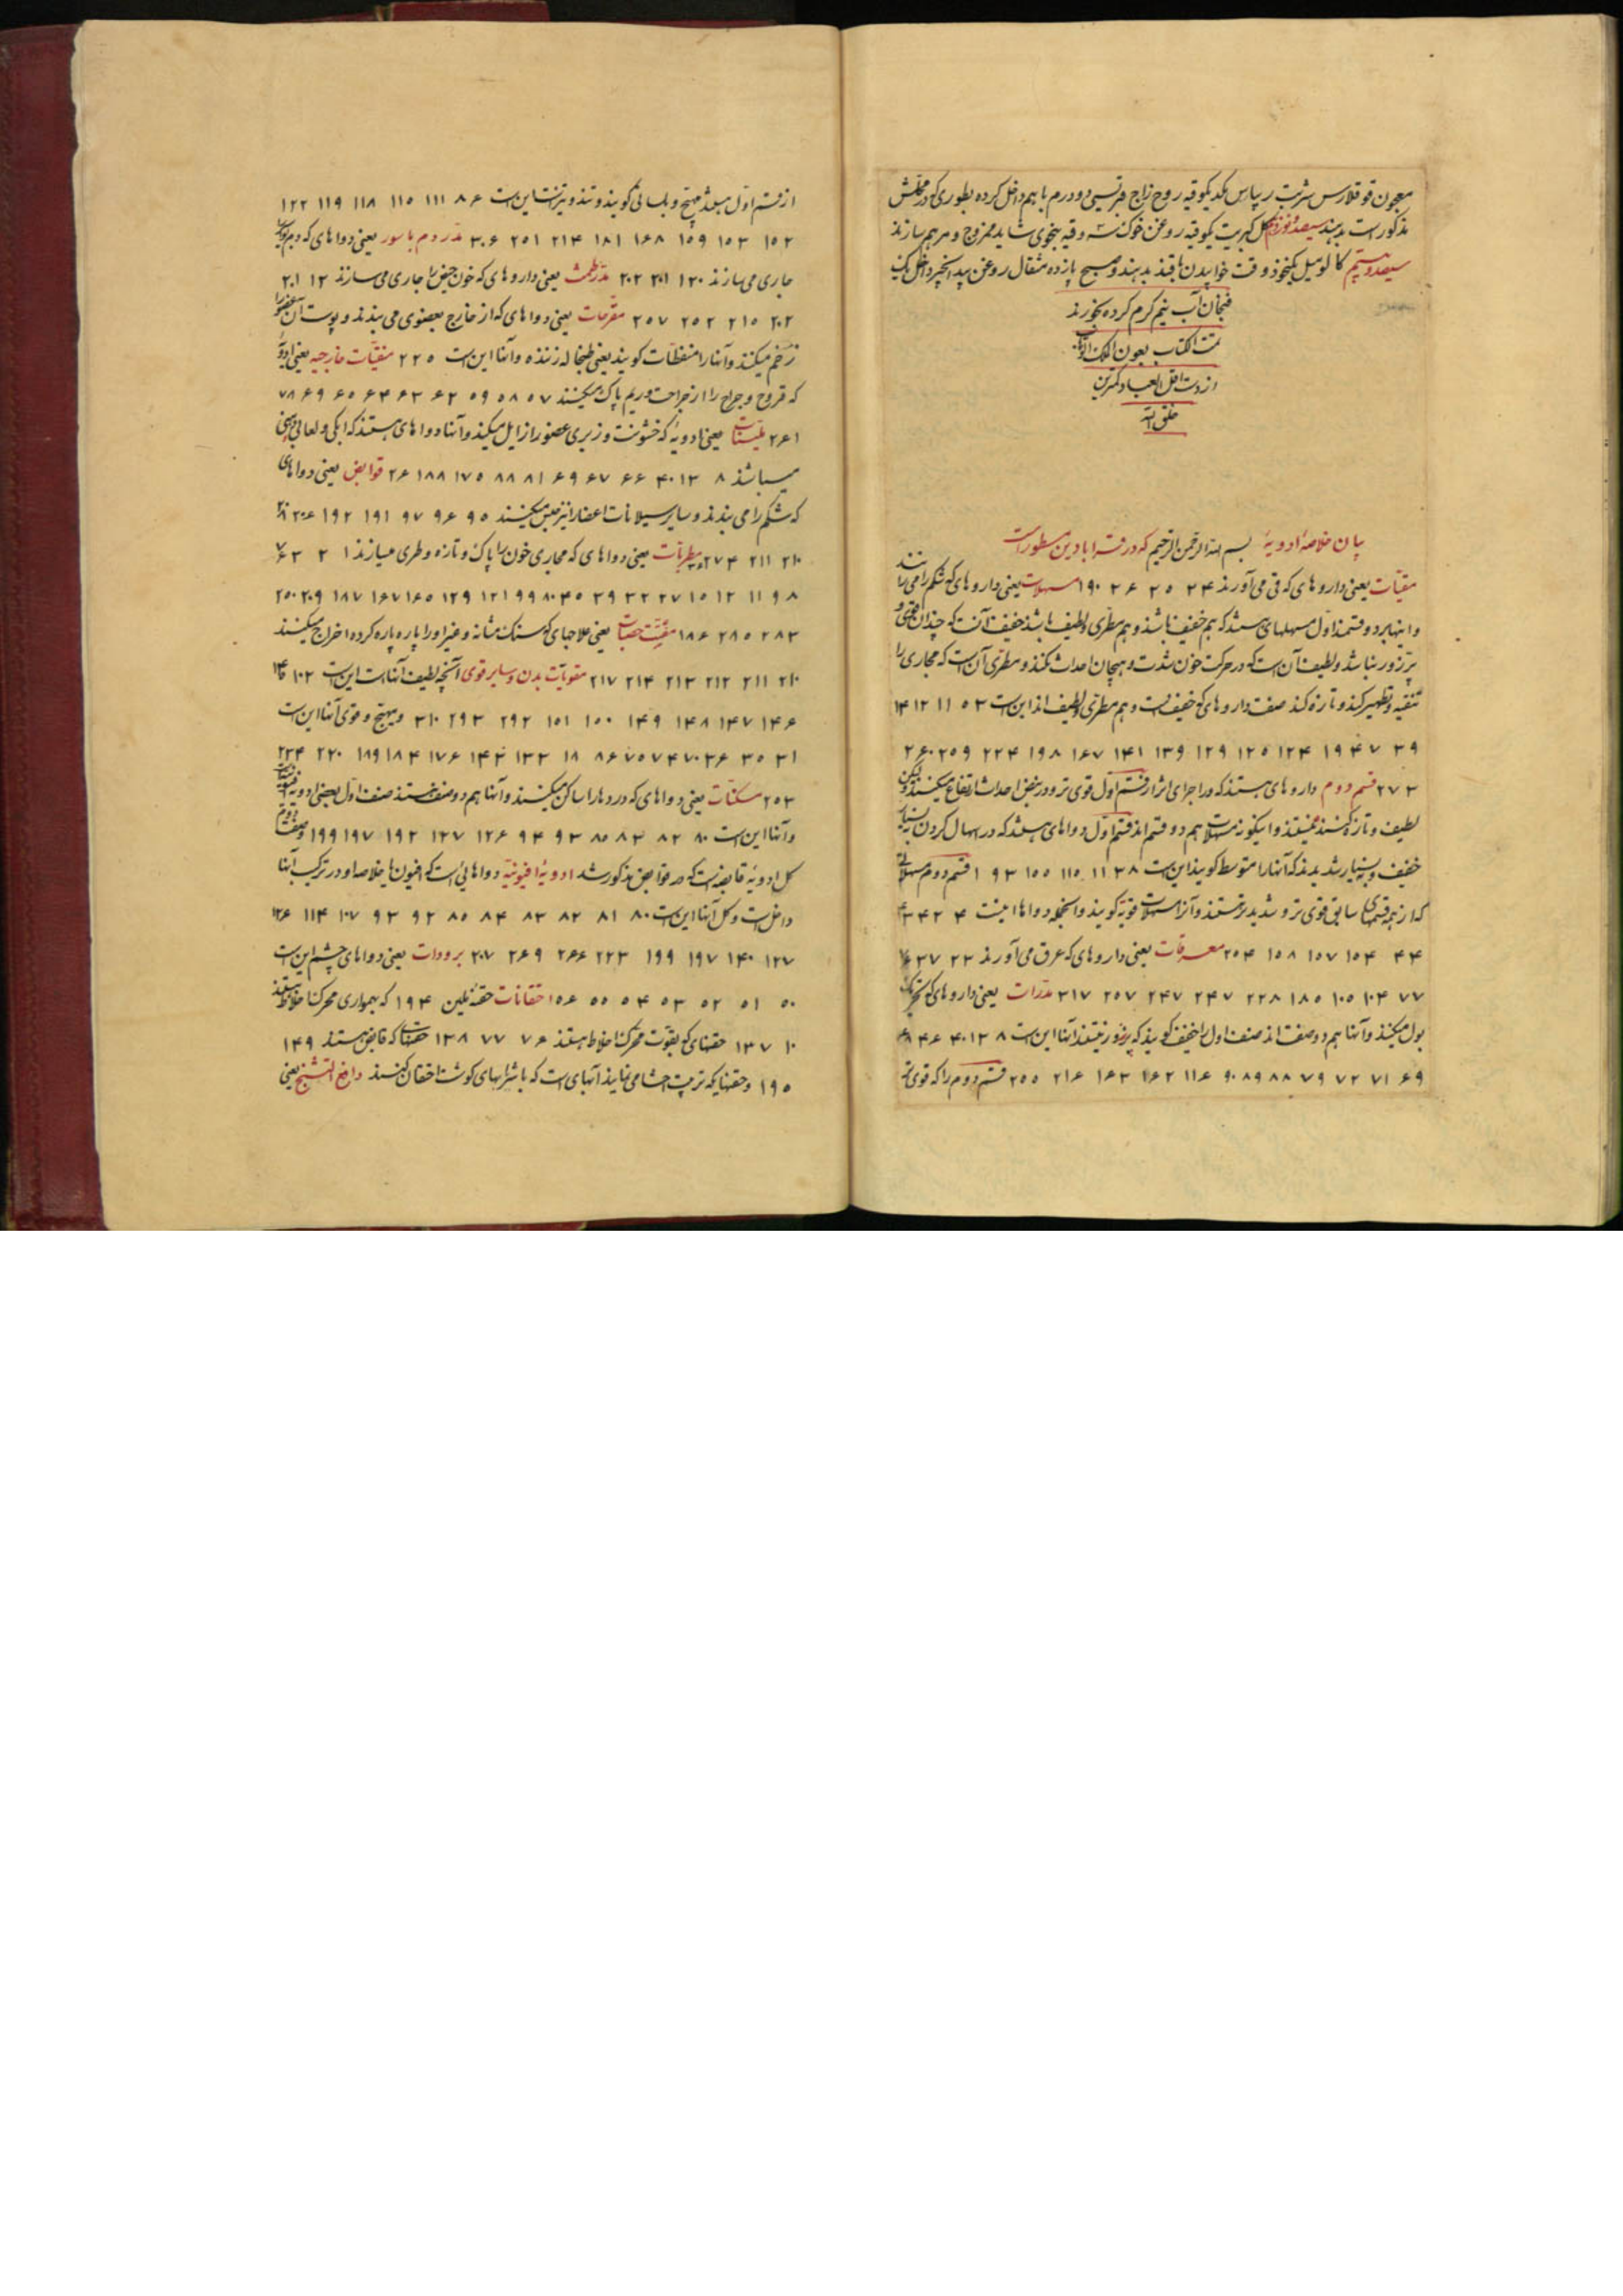 معجون قوقلارس شربت ریباس یکوقیه روح زاج فرنسیسی دو درم باهم داخل کرده بطوری که در محلش
مذکور است بدهند سیصد و نوزدهم کل کبریت یکوقیه روغن خوک سه وقیه بنحوی شاید ممزوج و مرهم سازند
سیصد و بیستم کالومیل یکنخود وقت خوابیدن با قند بدهند و صبح پانزده مثقال روغن بیدانجیر داخل یک
فنجان آب نیم گرم کرده بخورند
تمت الکتاب بعون الملک الوهاب
از دست اقل العباد کمترین
خلق الله
بیان خلاصهٔ ادویهٔ بسم الله الرحمن الرحیم که در قرابادین مسطور است
مقیّات یعنی داروهای که قی می‌آورند ۲۴ ۲۵ ۲۶ ۱۹۰ مسهلات یعنی داروهای که شکم را می‌رانند
و اینها بر دو قسمند اول مسهلهای هستند که هم خفیف باشند و هم مطرّی و لطیف باشند خفیف آنست که چندان قوی و
پر زور نباشد و لطیف آن است که در حرکت خون شدت و هیجان احداث نکند و مطرّی آن است که مجاری را
تنقیه و تطهیر کند و تازه کند صفت داروهای که خفیفست و هم مطرّی و لطیف اند این است ۳ ۵ ۱۱ ۱۲ ۱۴
۳۹ ۴۷ ۱۹ ۱۲۴ ۱۲۵ ۱۲۹ ۱۳۹ ۱۴۱ ۱۶۷ ۱۹۸ ۲۲۴ ۲۵۹ ۲۶۰
۲۷۳ قسم دوم داروهای هستند که در اجرای اثر از قسم اول قوی‌تر و در نبض احداث ارتفاع میکنند ولیکن
لطیف و تازه کننده نیستند و اینگونه مسهلات هم دو قسم اند قسم اول دواهای هستند که در اسهال کردن نه بسیار
خفیف و نه بسیار شدیدند که آنها را متوسط گویند این است ۳۸ ۱۱ ۱۱۰ ۱۵۵ ۱۹۳ قسم دوم مسهلاتی
که از همه قسمهای سابق قوی‌تر و شدیدتر هستند و آنرا مسهلات قویّه گویند و انجمله دواها اینست ۴ ۴۲ ۴۳
۴۴ ۱۵۴ ۱۵۷ ۱۵۸ ۲۵۴ معرقات یعنی داروهای که عرق می‌آورند ۲۳ ۲۷ ۷۶
۷۷ ۱۰۴ ۱۰۵ ۱۸۵ ۲۲۸ ۲۴۷ ۲۴۷ ۲۵۷ ۳۱۷ مدرّات یعنی داروهای که تحریک
بول میکنند و آنها هم دو صفت اند صنف اول را خفیف گویند که پر زور نیستند آنها این است ۸ ۱۳ ۴۰ ۴۶ ۴۸
۶۹ ۷۱ ۷۲ ۷۹ ۸۸ ۸۹ ۹۰ ۱۱۶ ۱۶۲ ۱۶۳ ۲۱۶ ۲۵۵ قسم دوم را که قوی‌تر
از قسم اول میباشند مهیّج و بلسانی گویند و تند و تیزتست این است ۸۶ ۱۱۱ ۱۱۵ ۱۱۸ ۱۱۹ ۱۲۲
۱۵۲ ۱۵۳ ۱۵۹ ۱۶۸ ۱۸۱ ۲۱۴ ۲۵۱ ۳۰۶ مدرّ دم باسور یعنی دواهای که دم بواسیر
جاری می‌سازند ۱۲۰ ۲۰۱ ۲۰۲ مدرّ طمث یعنی داروهای که خون حیض را جاری می‌سازند ۱۲ ۲۰۱
۲۰۲ ۲۱۰ ۲۵۲ ۲۵۷ مقرحات یعنی دواهای که از خارج بعضوی می‌بندند و پوست آن عضو را
زخم میکنند و آنها را منفطات گویند یعنی طبخاله زننده و آنها این است ۲۲۵ منقیّات خارجیه یعنی ادویهٔ
که قروح و جراح را از جراحت و ریم پاک میکنند ۵۷ ۵۸ ۵۹ ۶۲ ۶۳ ۶۴ ۶۵ ۶۹ ۷۸
۲۶۱ ملیّنات یعنی ادویهٔ که خشونت و زبری عضو را زایل میکند و آنها دواهای هستند که آبکی و لعابی و دهنی
میباشند ۸ ۱۳ ۴۰ ۶۶ ۶۷ ۶۹ ۸۱ ۸۸ ۱۷۵ ۱۸۸ ۲۶ قوابض یعنی دواهای
که شکم را می‌بندند و سایر سیلانات اعضا را نیز حبس میکنند ۹۵ ۹۶ ۹۷ ۱۹۱ ۱۹۲ ۲۰۶ ۲۰۸
۲۱۰ ۲۱۱ ۲۷۴ مطریات یعنی دواهای که مجاری خون را پاک و تازه و طری میسازند ۱ ۲ ۳ ۶ ۷
۸ ۹ ۱۱ ۱۲ ۱۵ ۲۷ ۳۲ ۳۹ ۴۵ ۸۰ ۹۹ ۱۲۱ ۱۲۹ ۱۶۵ ۱۶۷ ۱۸۷ ۲۰۹ ۲۵۰
۲۸۳ ۲۸۵ ۱۸۶ مفتّت حصاة یعنی علاجهای که سنک مثانه و غیر او را پاره پاره کرده اخراج میکنند
۲۱۰ ۲۱۱ ۲۱۲ ۲۱۳ ۲۱۴ ۲۱۷ مقویات بدن و سایر قوی آنچه لطیف آنهاست این است ۱۰۲
۱۴۶ ۱۴۷ ۱۴۸ ۱۴۹ ۱۰۰ ۱۰۱ ۲۹۲ ۲۹۳ ۳۱۰ و مهیّج و قوی آنها این است
۳۱ ۳۵ ۳۶ ۷۰ ۷۴ ۷۵ ۸۶ ۱۸ ۱۳۳ ۱۴۳ ۱۷۶ ۱۸۴ ۱۸۹ ۲۲۰ ۲۳۴
۲۵۳ مسکنات یعنی دواهای که دردها را ساکن میکنند و آنها هم دو صنف هستند صنف اول بعضی ادویه افیونیه است
و آنها این است ۸۰ ۸۲ ۸۳ ۸۵ ۹۳ ۹۴ ۱۲۶ ۱۲۷ ۱۹۲ ۱۹۷ ۱۹۹ و صنف دوم
کل ادویه قابضه است که در قوابض مذکور شد ادویهٔ افیونیه دواهائی است که افیون یا خلاصه او در ترکیب آنها
داخل است و کل آنها این است ۸۰ ۸۱ ۸۲ ۸۳ ۸۴ ۸۵ ۹۲ ۹۳ ۱۰۷ ۱۱۴ ۱۲۶
۱۲۷ ۱۴۰ ۱۹۷ ۱۹۹ ۲۲۳ ۲۶۶ ۲۶۹ ۲۰۷ برودات یعنی دواهای چشم این است
۵۰ ۵۱ ۵۲ ۵۳ ۵۴ ۵۵ ۱۵۶ حقانات حقنهٔ ملین ۱۹۴ که بهمواری محرک اخلاط هستند
۱۰ ۱۳۷ حقنهای که بقوّت محرک اخلاط هستند ۷۶ ۷۷ ۱۳۸ حقنهای که قابض هستند ۱۴۹
۱۹۵ و حقنهایکه تربیت احشا می‌نمایند آنهای است که با شرابهای گوشت احقان کنند دافع التشنج یعنی